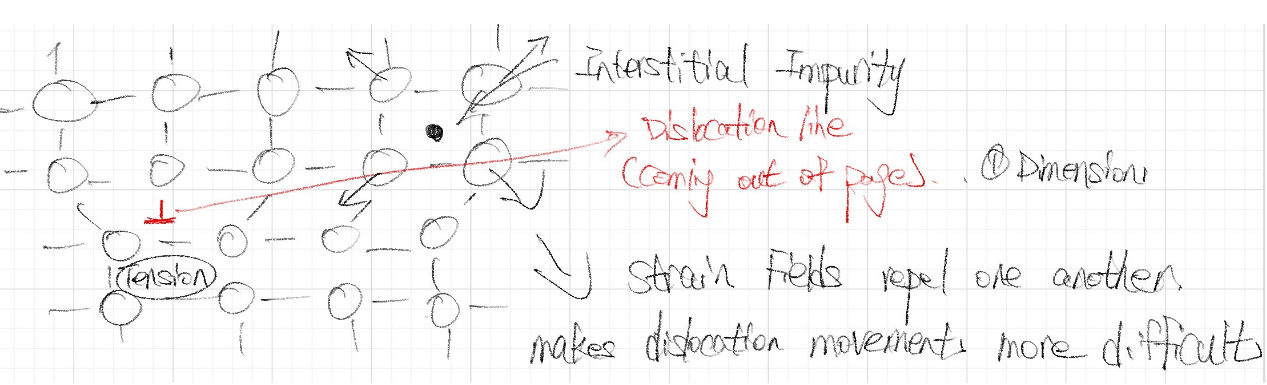 Interstitial Impurity
Dislocation line
(Coming out of pages). ① Dimension,
Tension
Strain Fields repel one another.
makes dislocation movements more difficult